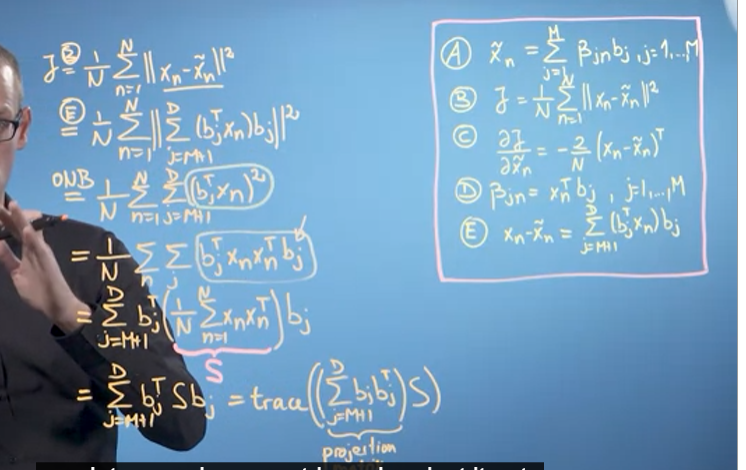 J Ⓑ= 1/N ∑_{n=1}^{N} ||x_n - x̃_n||²
Ⓔ= 1/N ∑_{n=1}^{N} || ∑_{j=M+1}^{D} (b_j^T x_n) b_j ||²
ONB = 1/N ∑_{n=1}^{N} ∑_{j=M+1}^{D} (b_j^T x_n)²
= 1/N ∑_n ∑_j b_j^T x_n x_n^T b_j
= ∑_{j=M+1}^{D} b_j^T (1/N ∑_{n=1}^{N} x_n x_n^T) b_j
S
= ∑_{j=M+1}^{D} b_j^T S b_j = trace((∑_{j=M+1}^{D} b_j b_j^T) S)
projection
Ⓐ x̃_n = ∑_{j=1}^{M} β_{jn} b_j , j=1,...,M
Ⓑ J = 1/N ∑_{n=1}^{N} ||x_n - x̃_n||²
Ⓒ ∂J/∂x̃_n = -2/N (x_n - x̃_n)^T
Ⓓ β_{jn} = x_n^T b_j , j=1,...,M
Ⓔ x_n - x̃_n = ∑_{j=M+1}^{D} (b_j^T x_n) b_j